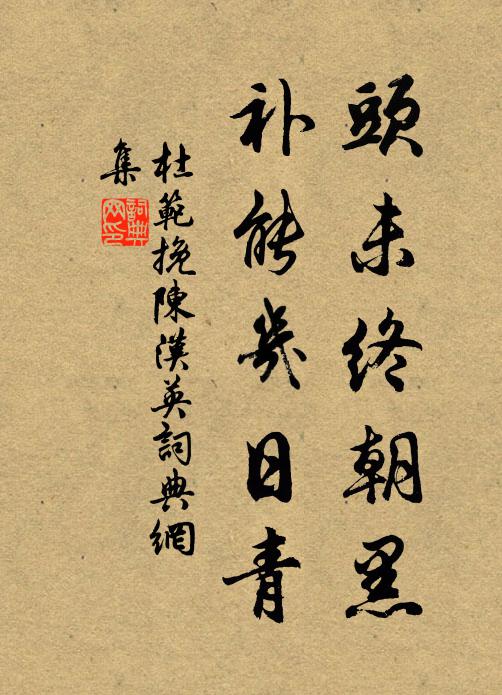 頭未終朝黑
补能幾日青
杜範挽陳漢英詞典網
集
詞典網印